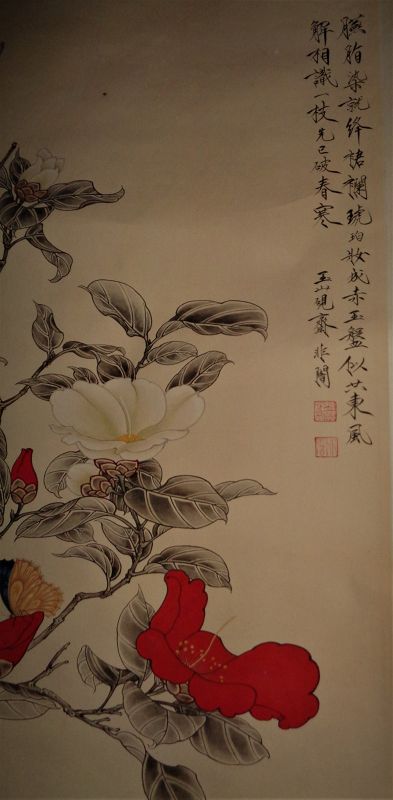 臙脂染就絳裙襴琥珀妝成赤玉盤似共東風
解相識一枝先已破春寒
玉山硯齋非闇